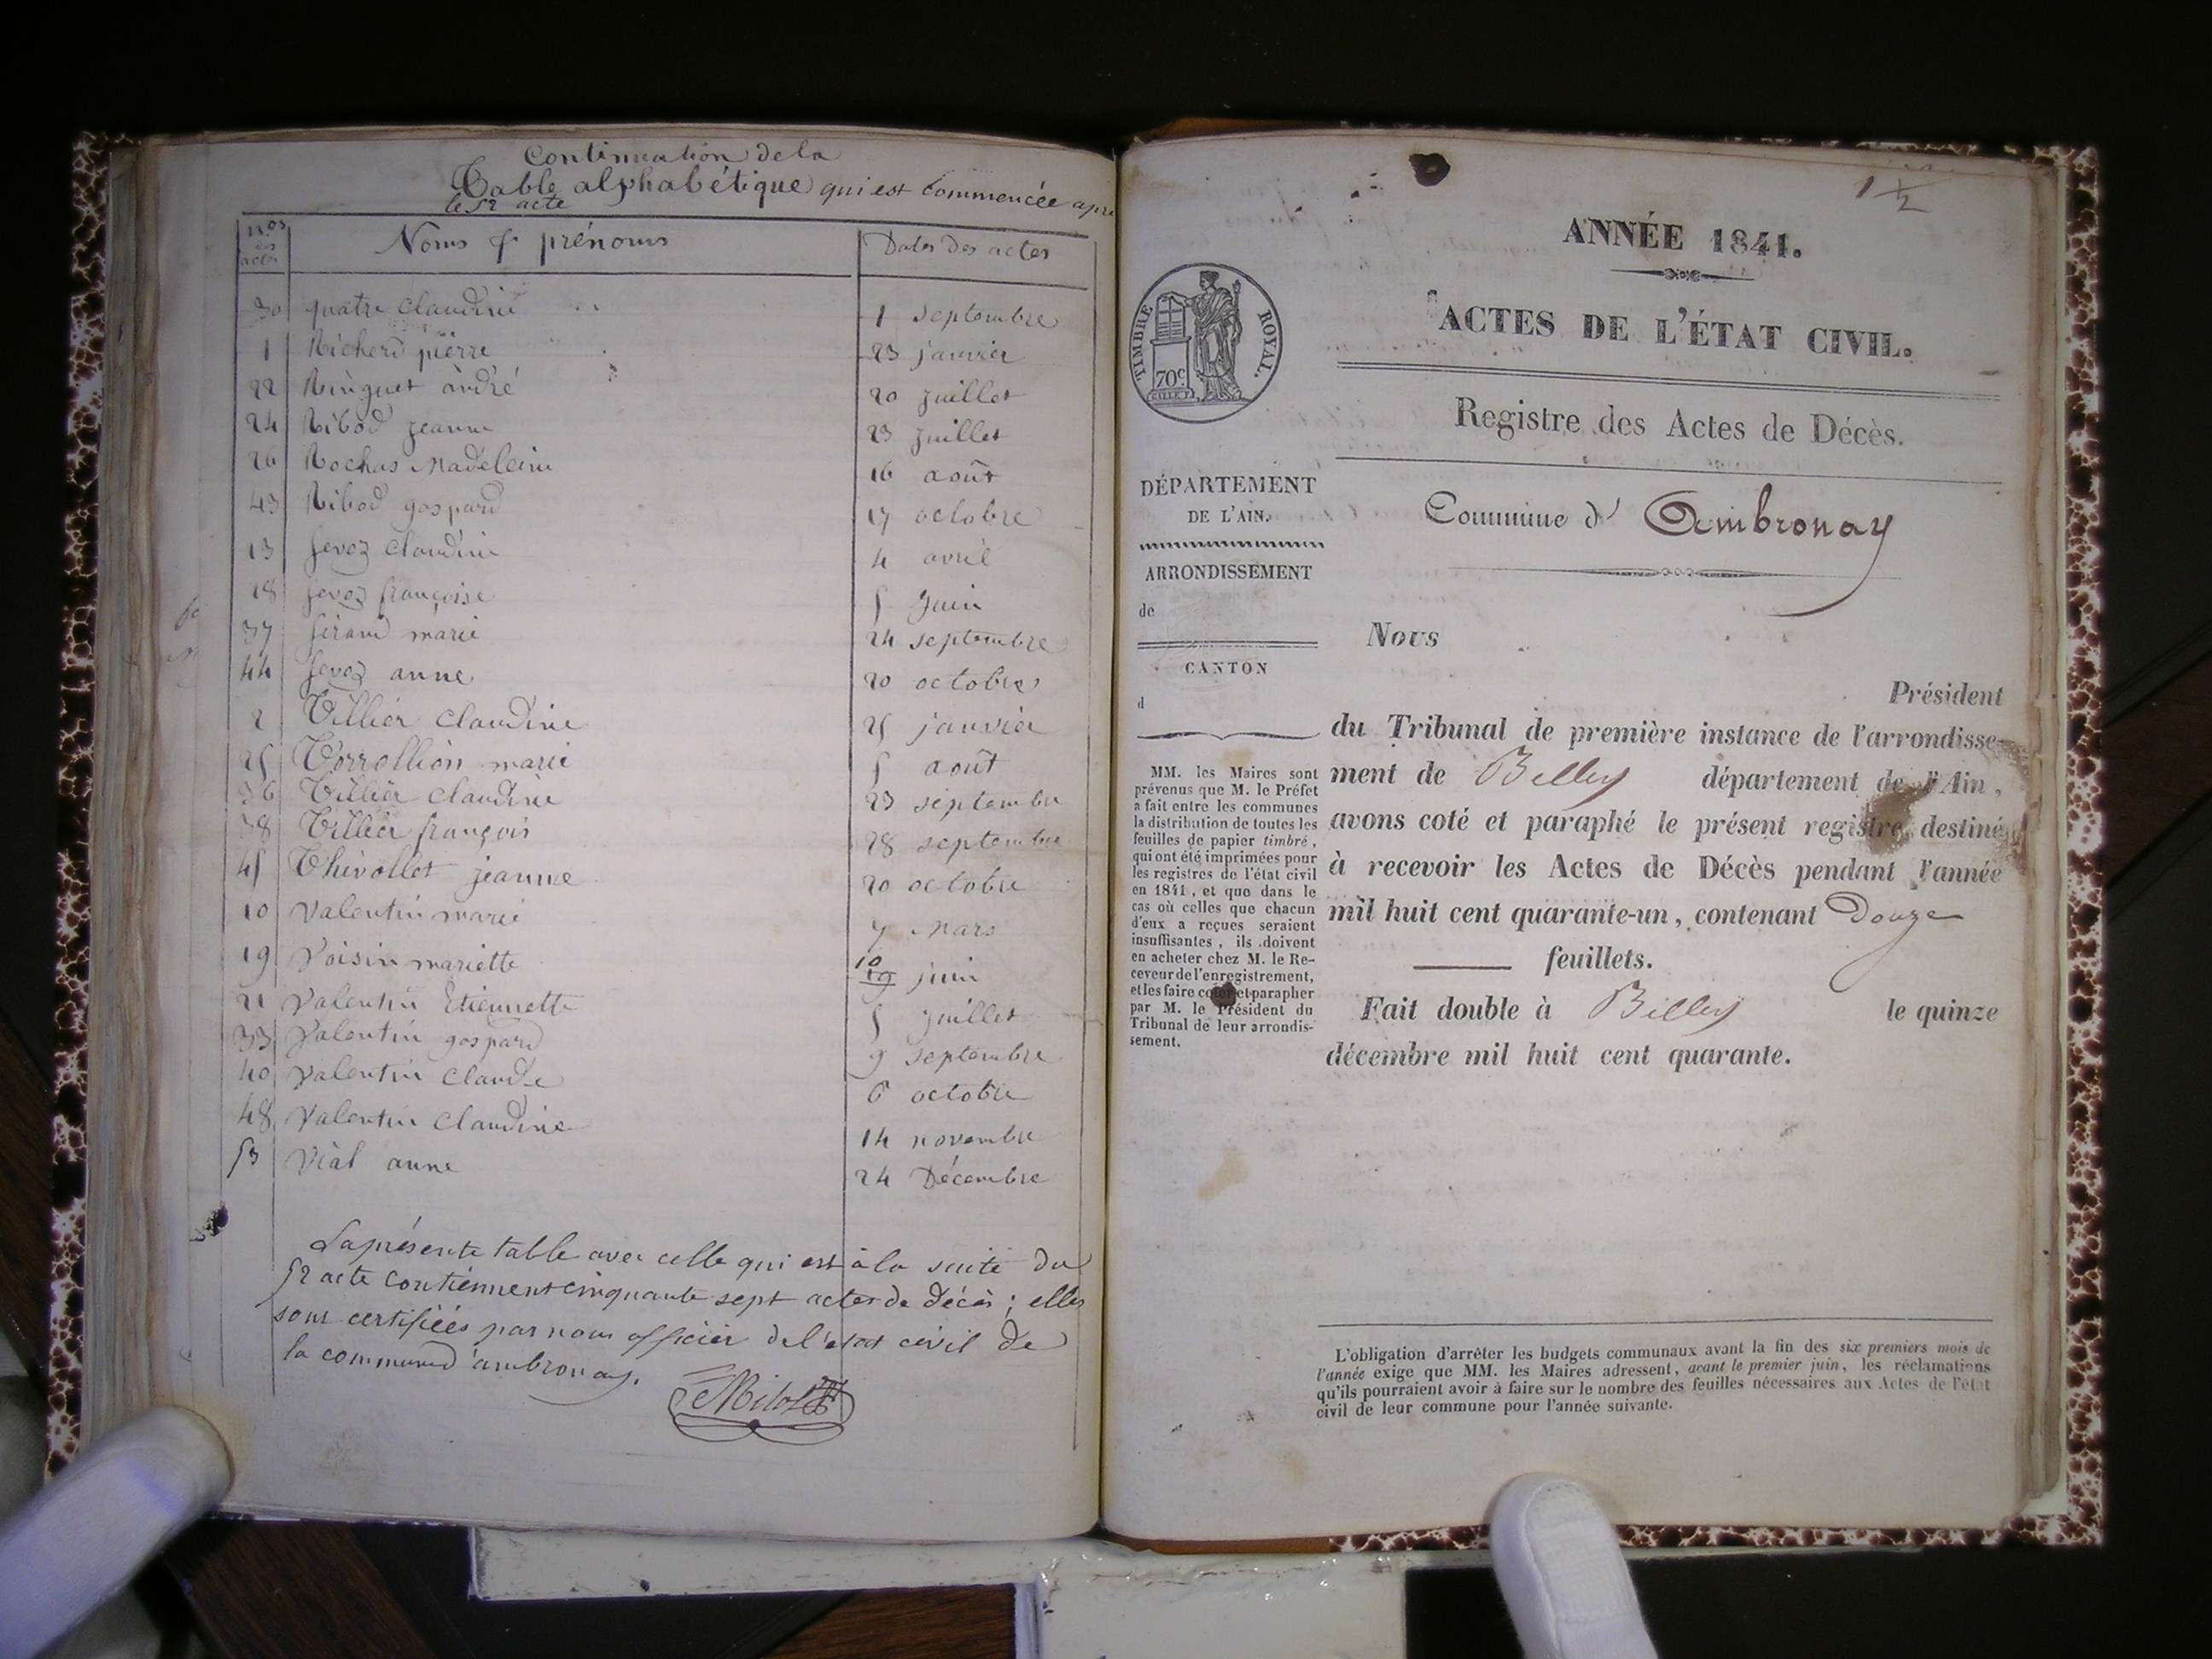 Continuation de la
Table alphabétique qui est commencée apre
le 52 acte
nos des actes Noms & prénoms Dates des actes
30 quatre Claudine 1 septembre
1 Richerd pierre 23 janvier
22 Ringuet andré 20 juillet
24 Ribod jeanne 23 juillet
26 Rochas Madeleine 16 août
43 Ribod gaspard 17 octobre
13 Sevoz Claudine 4 avril
18 Sevoz françoise 5 juin
37 Siraud marie 24 septembre
44 Sevoz anne 20 octobre
2 Tillier Claudine 25 janvier
25 Torrollion marie 5 août
36 Tillier Claudine 23 septembre
38 Tillier françois 28 septembre
45 Thevollet jeanne 20 octobre
10 Valentin marie 7 mars
19 Voisin mariette 10 juin
21 Valentin Etiennette 5 juillet
33 Valentin gaspard 9 septembre
40 Valentin Claude 6 octobre
48 Valentin Claudine 14 novembre
53 Vial anne 24 Décembre
La présente table avec celle qui est à la suite du
52 acte contiennent cinquante sept actes de décès ; elles
sont certifiées par nous officier de l'etat civil de
la commune d'ambronay.
1/12
ANNÉE 1841.
ACTES DE L'ÉTAT CIVIL.
TIMBRE ROYAL.
70c
Registre des Actes de Décès.
DÉPARTEMENT
DE L'AIN.
ARRONDISSEMENT
de
CANTON
d
MM. les Maires sont
prévenus que M. le Préfet
a fait entre les communes
la distribution de toutes les
feuilles de papier timbré,
qui ont été imprimées pour
les registres de l'état civil
en 1841, et que dans le
cas où celles que chacun
d'eux a reçues seraient
insuffisantes, ils doivent
en acheter chez M. le Re-
ceveur de l'enregistrement,
et les faire coter et parapher
par M. le Président du
Tribunal de leur arrondis-
sement.
Commune d' Ambronay
Nous
Président
du Tribunal de première instance de l'arrondisse-
ment de Belley département de l'Ain,
avons coté et paraphé le présent registre destiné
à recevoir les Actes de Décès pendant l'année
mil huit cent quarante-un, contenant Douze
feuillets.
Fait double à Belley le quinze
décembre mil huit cent quarante.
L'obligation d'arrêter les budgets communaux avant la fin des six premiers mois de
l'année exige que MM. les Maires adressent, avant le premier juin, les réclamations
qu'ils pourraient avoir à faire sur le nombre des feuilles nécessaires aux Actes de l'état
civil de leur commune pour l'année suivante.